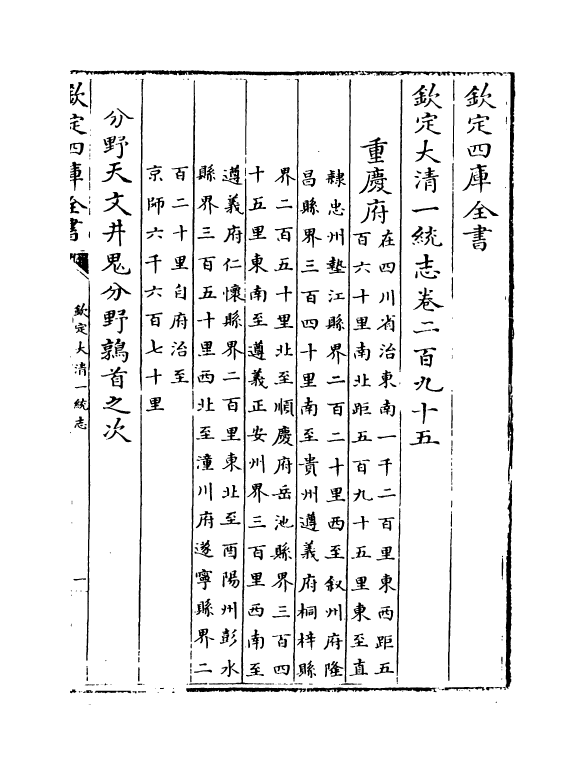 欽定四庫全書
欽定大清一統志卷二百九十五
重慶府
在四川省治東南一千二百里東西距五
百六十里南北距五百九十五里東至直
隸忠州墊江縣界二百二十里西至叙州府隆
昌縣界三百四十里南至貴州遵義府桐梓縣
界二百五十里北至順慶府岳池縣界三百四
十五里東南至遵義正安州界三百里西南至
遵義府仁懷縣界二百里東北至酉陽州彭水
縣界三百五十里西北至潼川府遂寧縣界二
百二十里自府治至
京師六千六百七十里
分野天文井鬼分野鶉首之次
欽定四庫全書
欽定大清一統志
一